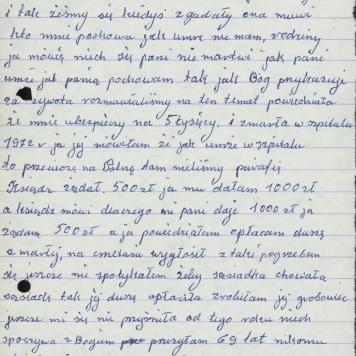 i tak żeśmy się kiedyś zgadały ona mówi
kto mnie pochowa jak umre nie mam, rodziny
ja mówię niech się pani nie martwi jak pani
umże jak panią pochowam tak jak Bóg przykazuje
za żywota rozmawialiśmy na ten temat powiedziała
że mnie ubezpieczy na 5 tysięcy. i zmarła w szpitalu
1972 r ja jej mówiłam że jak umże w szpitalu
to przewiozę na Polną tam mieliśmy parafię
Ksiądz żądał. 500 zł ja mu dałam 1000 zł
a ksiądz mówi dlaczego mi pani daje 1000 zł ja
żądam 500 zł a ja powiedziałam opłacam duszę
zmarłej, na cmetażu wygłosił z taki pogrzebem
się jeszcze nie spotykałem żeby sąsiadka chowała
sąsiadę tak jej duszę opłaciła zrobiłam jej grobowiec
jeszcze mi się nie przyśniła od tego roku niech
spoczywa z Bogiem przeżyłam 69 lat nikomu